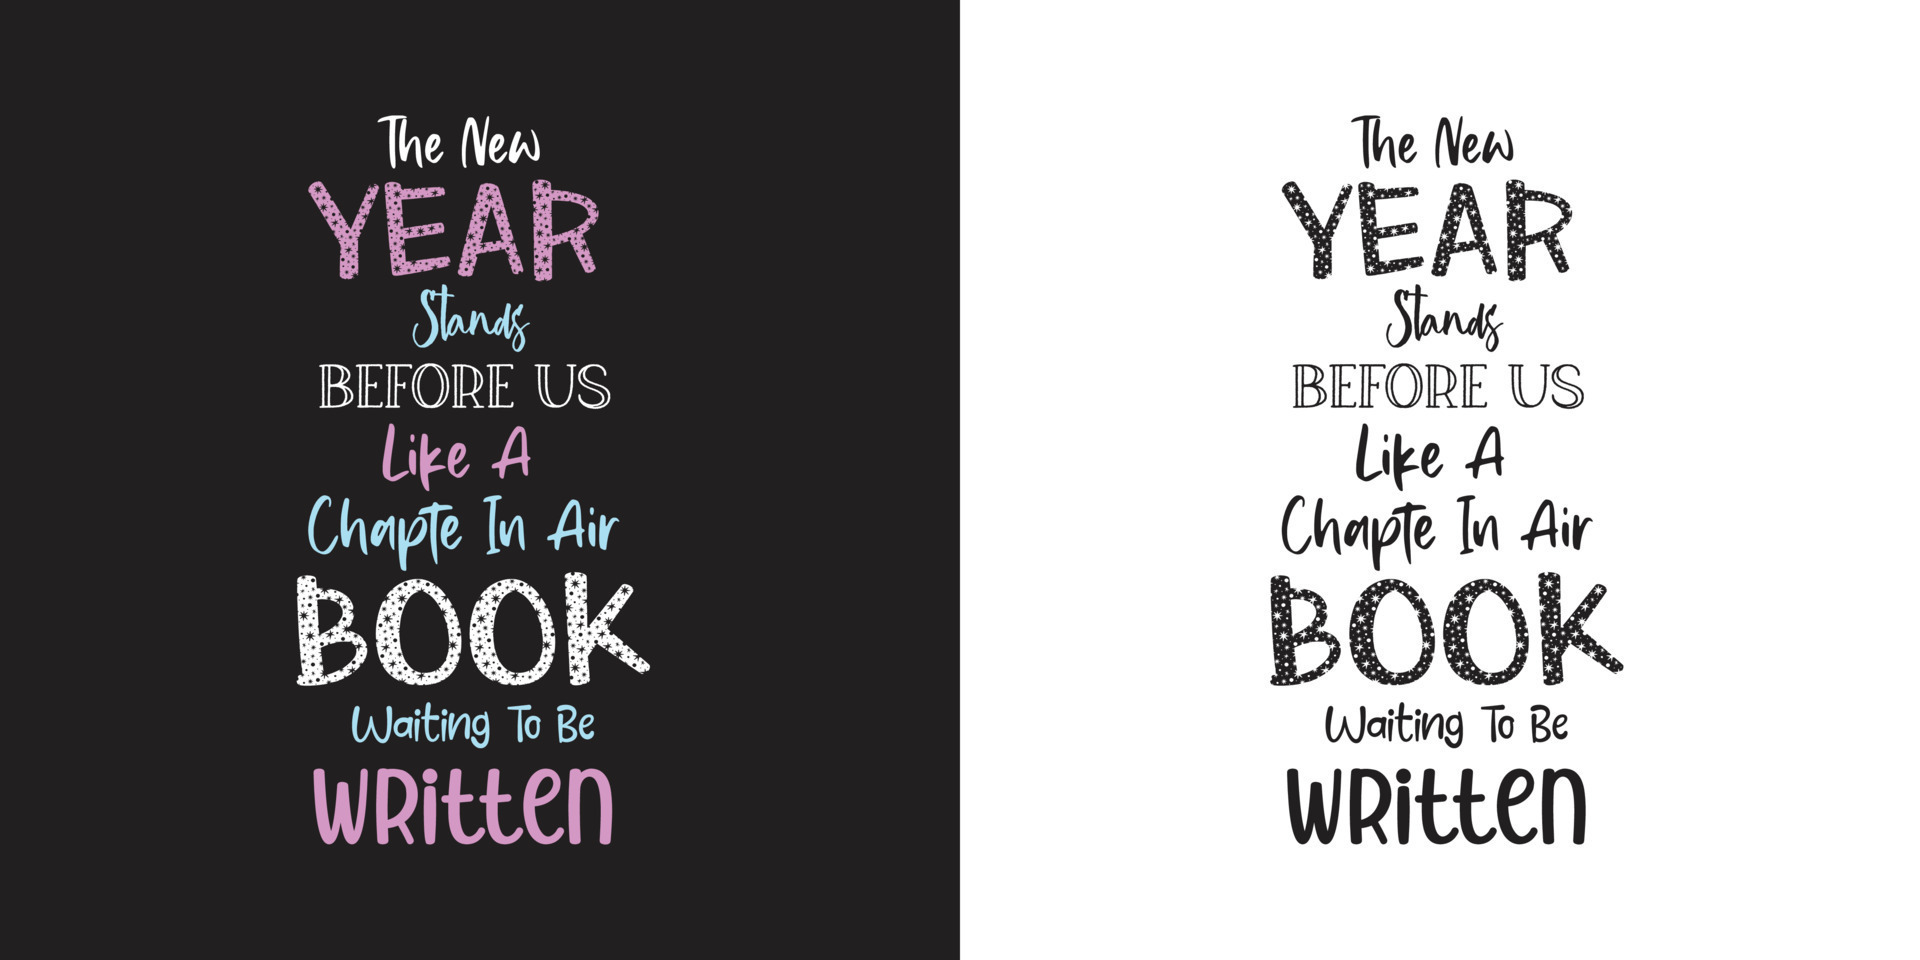 The New
YEAR
Stands
BEFORE US
Like A
Chapte In Air
BOOK
Waiting To Be
WRitten
The New
YEAR
Stands
BEFORE US
Like A
Chapte In Air
BOOK
Waiting To Be
WRitten